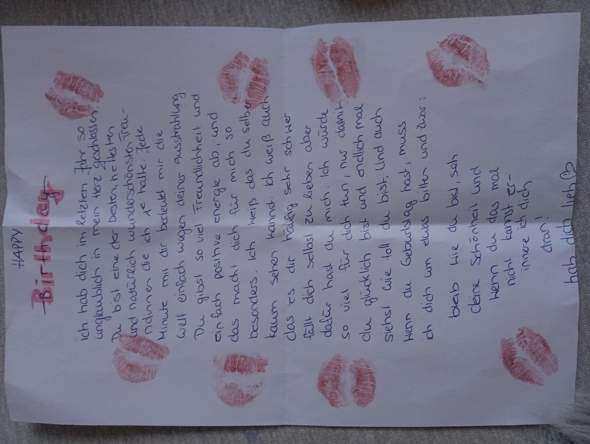 HAPPY
Birthday
ich hab dich im letzten Jahr so
unglaublich in mein Herz geschlossen
Du bist eine der besten, nettesten
und natürlich wunderschönsten Freu-
ndinnen die ich je hatte. Jede
Minute mit dir bedeutet mir die
Welt einfach wegen deiner Ausstrahlung
Du gibst so viel Freundlichheit und
einfach positive energie ab, und
das macht dich für mich so
besonders. Ich weiß das du selber
kaum sehen kannst ich weiß auch
das es dir häufig sehr schwer
fällt dich selbst zu lieben aber
dafür hast du mich. Ich würde
so viel für dich tun, nur damit
du glücklich bist und endlich mal
siehst wie toll du bist. Und auch
wenn du Geburtstag hast, muss
ich dich um etwas bitten und zwar:
bleib wie du bist, seh
deine Schönheit und
wenn du das mal
nicht kannst er-
innere ich dich
dran!
hab dich lieb